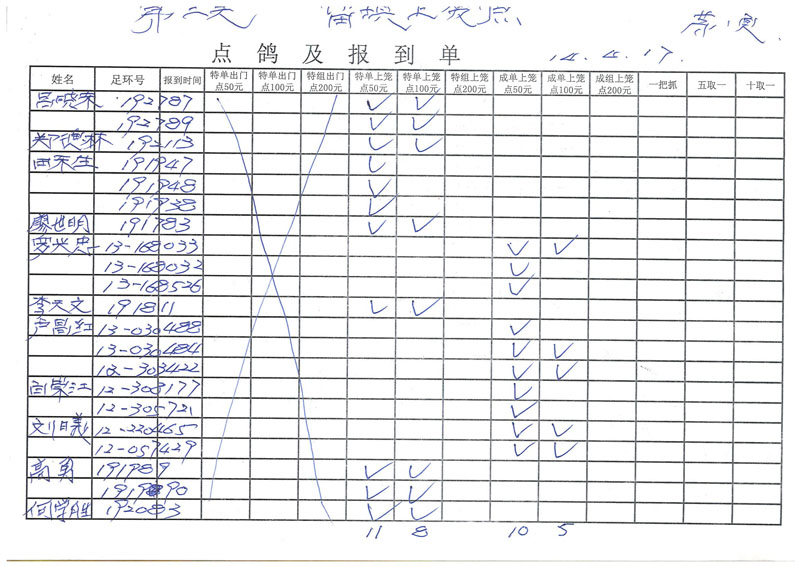 第二天
点鸽及报到单 14.4.17.
姓名 足环号 报到时间 特单出门点50元 特单出门点100元 特组出门点200元 特单上笼点50元 特单上笼点100元 特组上笼点200元 成单上笼点50元 成单上笼点100元 成组上笼点200元 一把抓 五取一 十取一
192787 ✓ ✓
192789 ✓ ✓
192113 ✓ ✓
田荣生 191947 ✓
191948 ✓
191938 ✓
廖世明 191783 ✓ ✓
罗兴忠 13-168033 ✓ ✓
13-168032 ✓
13-168526 ✓
李天文 191811 ✓ ✓
13-030488 ✓
13-030484 ✓ ✓
12-303422 ✓ ✓
12-303177 ✓
12-305721 ✓
12-220465 ✓ ✓
12-057429 ✓ ✓
高勇 191989 ✓ ✓
191990 ✓ ✓
何学胜 192083 ✓ ✓
11 8 10 5